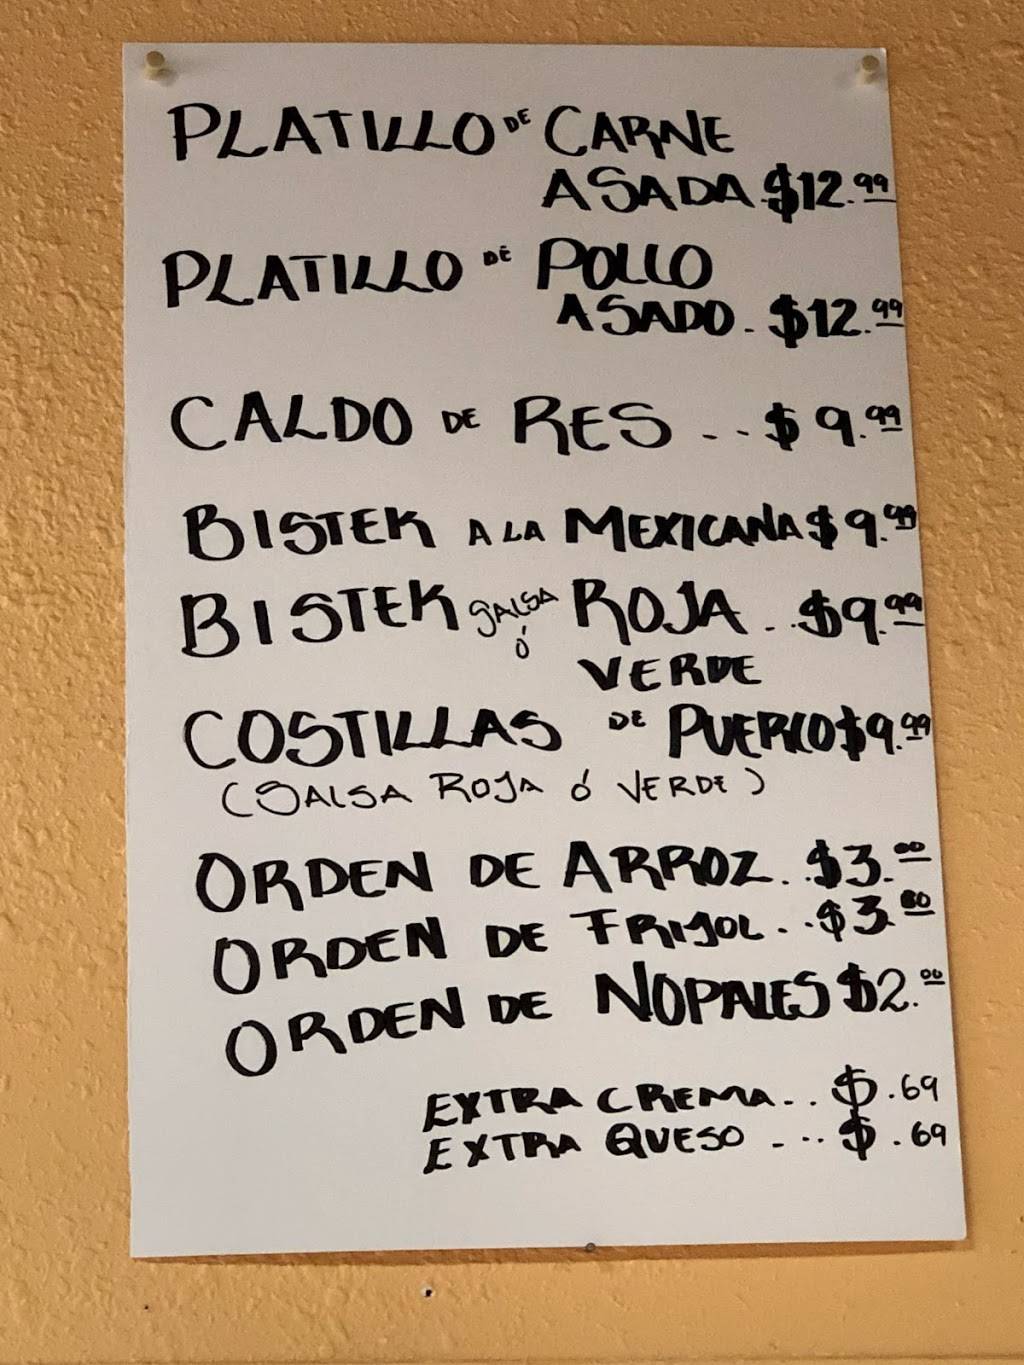 PLATILLO DE CARNE
ASADA $12.99
PLATILLO DE POLLO
ASADO. $12.99
CALDO DE RES ... $9.99
BISTEK A LA MEXICANA $9.99
BISTEK SALSA ROJA ... $9.99
Ó VERDE
COSTILLAS DE PUERCO $9.99
(SALSA ROJA Ó VERDE)
ORDEN DE ARROZ. $3.00
ORDEN DE FRIJOL... $3.00
ORDEN DE NOPALES $2.00
EXTRA CREMA... $.69
EXTRA QUESO .... $.69